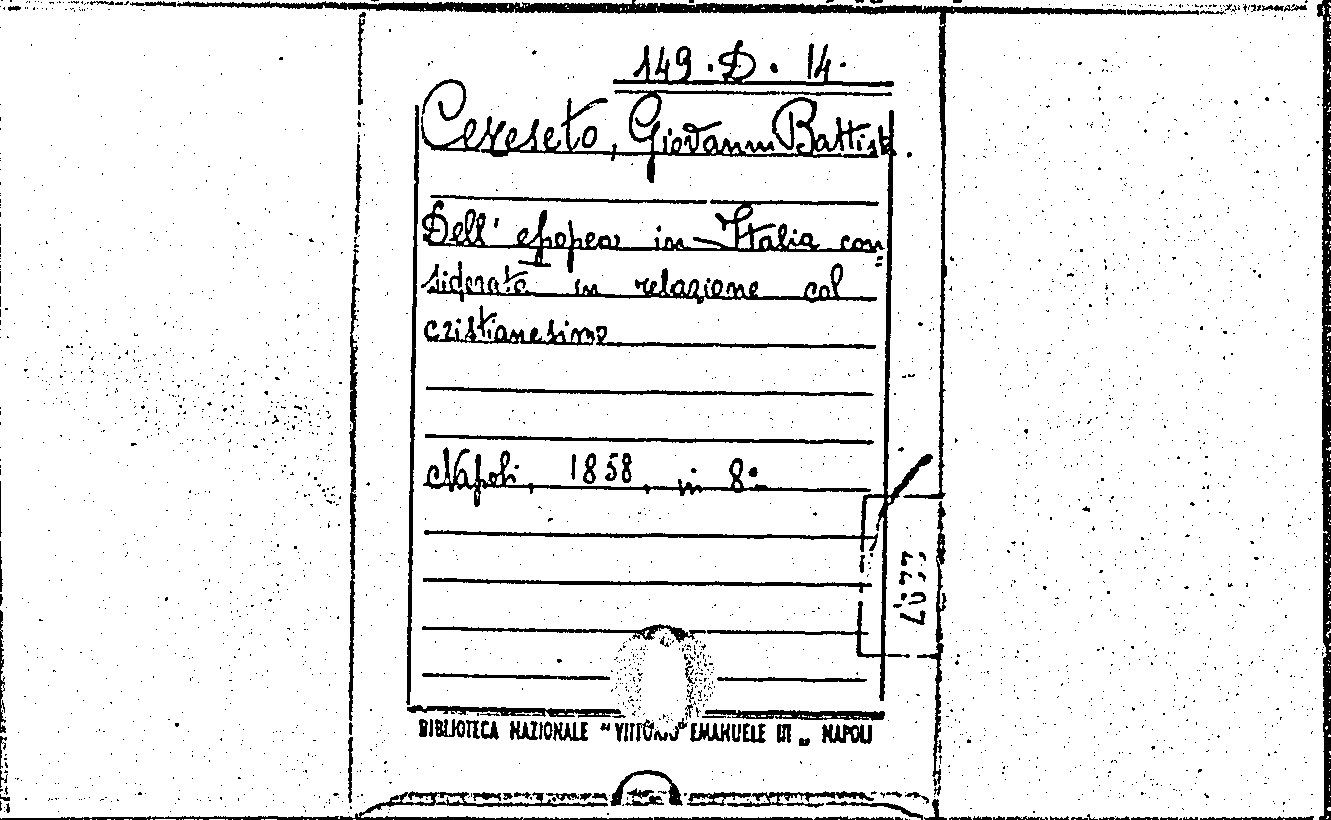 149.D.14.
Cereseto, Giovanni Battista.
Dell' epopea in Italia con=
siderata in relazione col
cristianesimo
Napoli, 1858, in 8º
BIBLIOTECA NAZIONALE "VITTORIO EMANUELE III" NAPOLI